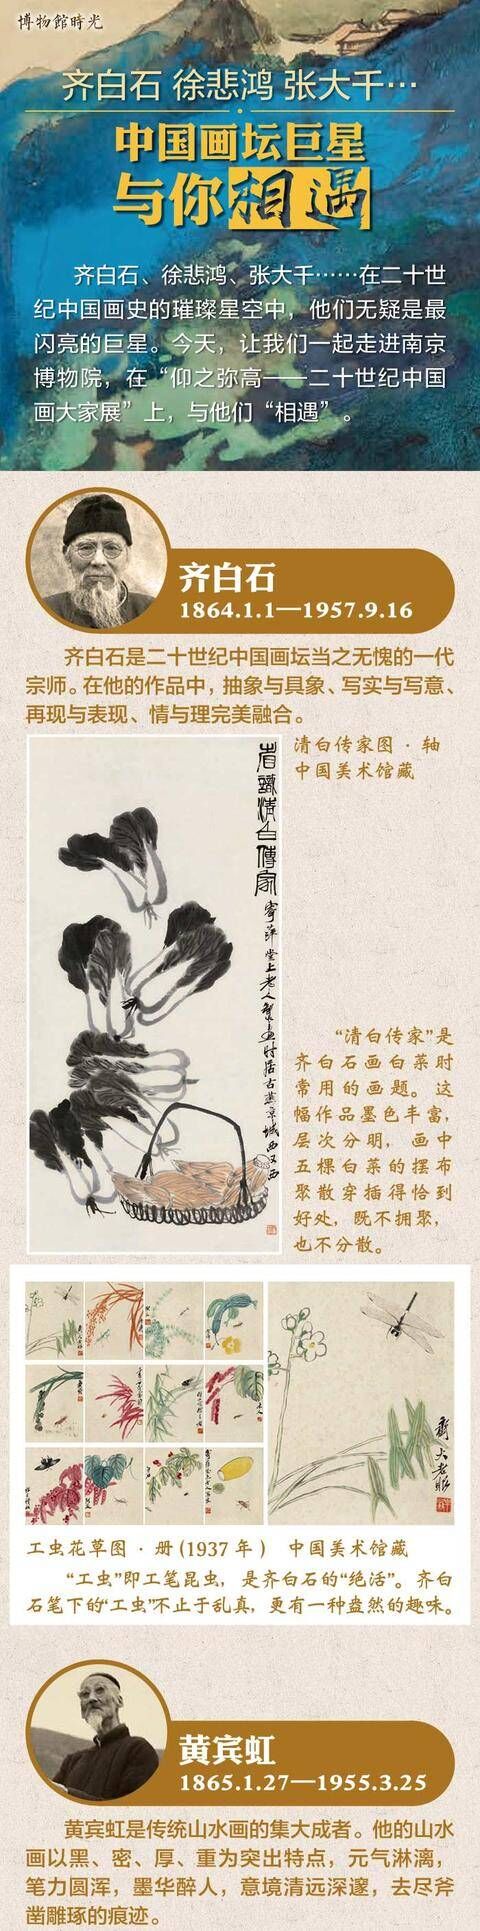 博物館時光
齐白石 徐悲鸿 张大千…
中国画坛巨星
与你相遇
齐白石、徐悲鸿、张大千……在二十世
纪中国画史的璀璨星空中，他们无疑是最
闪亮的巨星。今天，让我们一起走进南京
博物院，在“仰之弥高——二十世纪中国
画大家展”上，与他们“相遇”。
齐白石
1864.1.1—1957.9.16
齐白石是二十世纪中国画坛当之无愧的一代
宗师。在他的作品中，抽象与具象、写实与写意、
再现与表现、情与理完美融合。
清白传家图·轴
中国美术馆藏
清白傳家
寄萍堂上老人製畫時居古燕京城西又西
“清白传家”是
齐白石画白菜时
常用的画题。这
幅作品墨色丰富，
层次分明，画中
五棵白菜的摆布
聚散穿插得恰到
好处，既不拥聚，
也不分散。
工虫花草图·册(1937年) 中国美术馆藏
“工虫”即工笔昆虫，是齐白石的“绝活”。齐白
石笔下的“工虫”不止于乱真，更有一种盎然的趣味。
黄宾虹
1865.1.27—1955.3.25
黄宾虹是传统山水画的集大成者。他的山水
画以黑、密、厚、重为突出特点，元气淋漓，
笔力圆浑，墨华醉人，意境清远深邃，去尽斧
凿雕琢的痕迹。